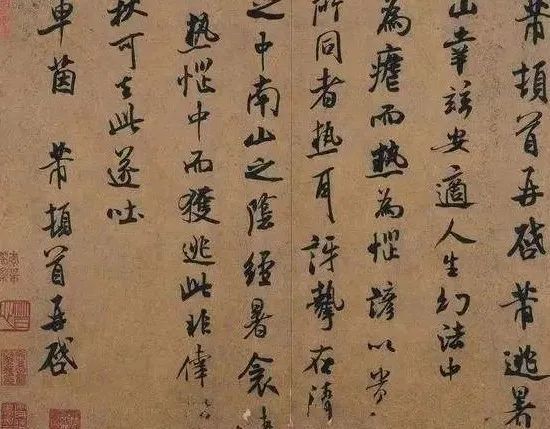 芾頓首再啓芾逃暑
山幸兹安適人生幻法中
為瘧而熱為惱諺以貴
所同者熱耳訝摯在
之中南山之陰經暑衾
熱惱中而獲逃此非倖
秋可去此遂吐
車茵 芾頓首再啓